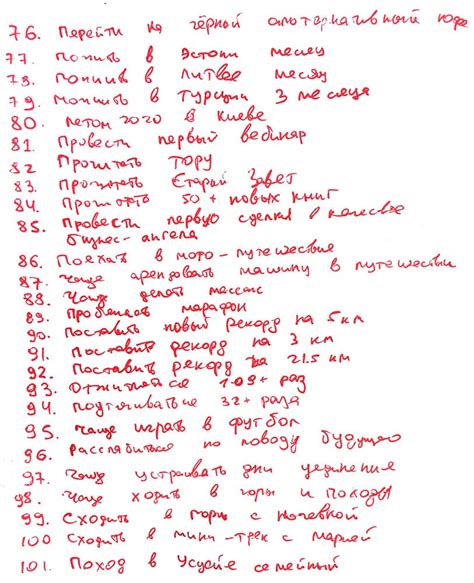 76. Перейти на чёрный альтернативный кофе
77. Пожить в Эстонии месяц
78. Пожить в Литве месяц
79. Пожить в Турции 3 месяца
80. Летом 2020 в Киеве
81. Провести первый вебинар
82 Прочитать Тору
83. Прочитать Старый Завет
84. Прочитать 50+ новых книг
85. Провести первую сделку в качестве
бизнес-ангела
86. Поехать в мото-путешествие
87. Чаще арендовать машину в путешествии
88. Чаще делать массаж
89. Пробежать марафон
90. Поставить новый рекорд на 5 км
91. Поставить рекорд на 3 км
92. Поставить рекорд на 21.5 км
93. Отжиматься 109+ раз
94. Подтягивание 32+ раза
95. Чаще играть в футбол
96. Расслабиться по поводу будущего
97. Чаще устраивать дни уединения
98. Чаще ходить в горы и походы
99. Сходить в горы с ночевкой
100 Сходить в мини-трек с Марией
101. Поход в семейный